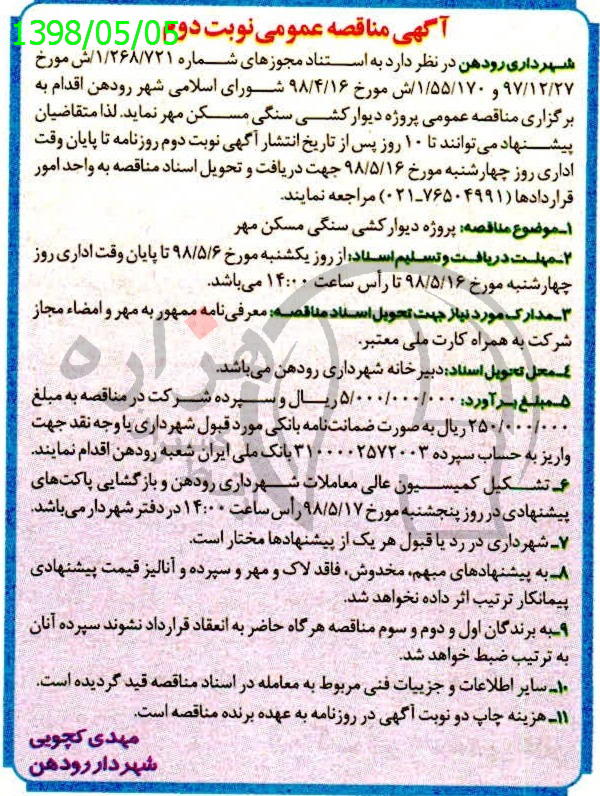 آگهی مناقصه عمومی نوبت دوم
1398/05/05
شهرداری رودهن در نظر دارد به استناد مجوزهای شماره ۱/۲۶۸/۷۲۱/ش مورخ
۹۷/۱۲/۲۷ و ۱/۵۵/۱۷۰/ش مورخ ۹۸/۴/۱۶ شورای اسلامی شهر رودهن اقدام به
برگزاری مناقصه عمومی پروژه دیوارکشی سنگی مسکن مهر نماید. لذا متقاضیان
پیشنهاد می‌توانند تا ۱۰ روز پس از تاریخ انتشار آگهی نوبت دوم روزنامه تا پایان وقت
اداری روز چهارشنبه مورخ ۹۸/۵/۱۶ جهت دریافت و تحویل اسناد مناقصه به واحد امور
قراردادها (۷۶۵۰۴۹۹۱-۰۲۱) مراجعه نمایند.
۱ـ موضوع مناقصه: پروژه دیوارکشی سنگی مسکن مهر
۲ـ مهلت دریافت و تسلیم اسناد: از روز یکشنبه مورخ ۹۸/۵/۶ تا پایان وقت اداری روز
چهارشنبه مورخ ۹۸/۵/۱۶ تا رأس ساعت ۱۴:۰۰ می‌باشد.
۳ـ مدارک مورد نیاز جهت تحویل اسناد مناقصه: معرفی‌نامه ممهور به مهر و امضاء مجاز
شرکت به همراه کارت ملی معتبر.
۴ـ محل تحویل اسناد: دبیرخانه شهرداری رودهن می‌باشد.
۵ـ مبلغ برآورد: ۵/۰۰۰/۰۰۰/۰۰۰ ریال و سپرده شرکت در مناقصه به مبلغ
۲۵۰/۰۰۰/۰۰۰ ریال به صورت ضمانت‌نامه بانکی مورد قبول شهرداری یا وجه نقد جهت
واریز به حساب سپرده ۳۱۰۰۰۰۲۵۷۲۰۰۳ بانک ملی ایران شعبه رودهن اقدام نمایند.
۶ـ تشکیل کمیسیون عالی معاملات شهرداری رودهن و بازگشایی پاکت‌های
پیشنهادی در روز پنجشنبه مورخ ۹۸/۵/۱۷ رأس ساعت ۱۴:۰۰ در دفتر شهردار می‌باشد.
۷ـ شهرداری در رد یا قبول هر یک از پیشنهادها مختار است.
۸ـ به پیشنهادهای مبهم، مخدوش، فاقد لاک و مهر و سپرده و آنالیز قیمت پیشنهادی
پیمانکار ترتیب اثر داده نخواهد شد.
۹ـ به برندگان اول و دوم و سوم مناقصه هرگاه حاضر به انعقاد قرارداد نشوند سپرده آنان
به ترتیب ضبط خواهد شد.
۱۰ـ سایر اطلاعات و جزییات فنی مربوط به معامله در اسناد مناقصه قید گردیده است.
۱۱ـ هزینه چاپ دو نوبت آگهی در روزنامه به عهده برنده مناقصه است.
مهدی کچویی
شهردار رودهن
هزاره